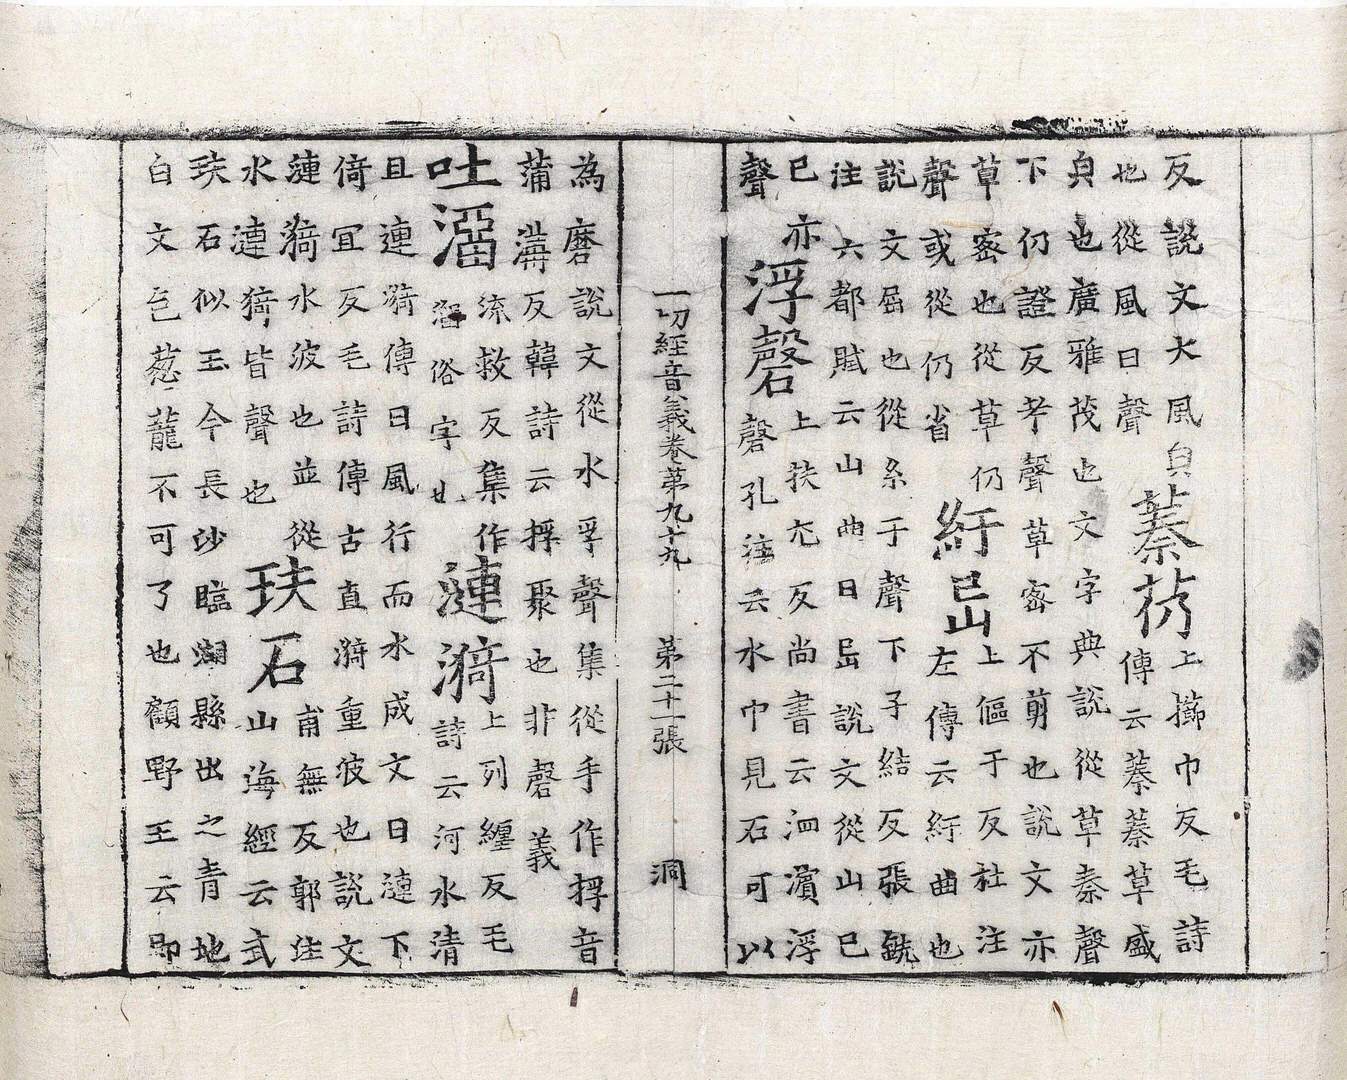 反說文大風皃
也從風日聲
蓁艿
上櫛巾反毛詩
傳云蓁蓁草盛
皃也廣雅茂也文字典說從草秦聲
下仍證反考聲草密不剪也說文亦
草密也從草仍
聲或從仍省
紆岊
上傴于反杜注
左傳云紆曲也
說文屈也從糸于聲下子結反張銑
注六都賦云山曲曰岊說文從山巳
巳亦
聲
浮磬
上扶尤反尚書云泗濱浮
磬孔注云水中見石可以
一切經音義卷第九十九 第二十一張 洞
為磨說文從水孚聲集從手作捊音
蒲溝反韓詩云捊聚也非磬義
吐澑
流救反集作
溜俗字也
漣漪
上列纏反毛
詩云河水清
且漣漪傳曰風行而水成文曰漣下
倚冝反毛詩傳古直漪重波也說文
漣漪水波也並從
水連猗皆聲也
玞石
甫無反郭注
山海經云武
玞石似玉今長沙臨湘縣出之青地
白文色葱蘢不可了也顧野王云即